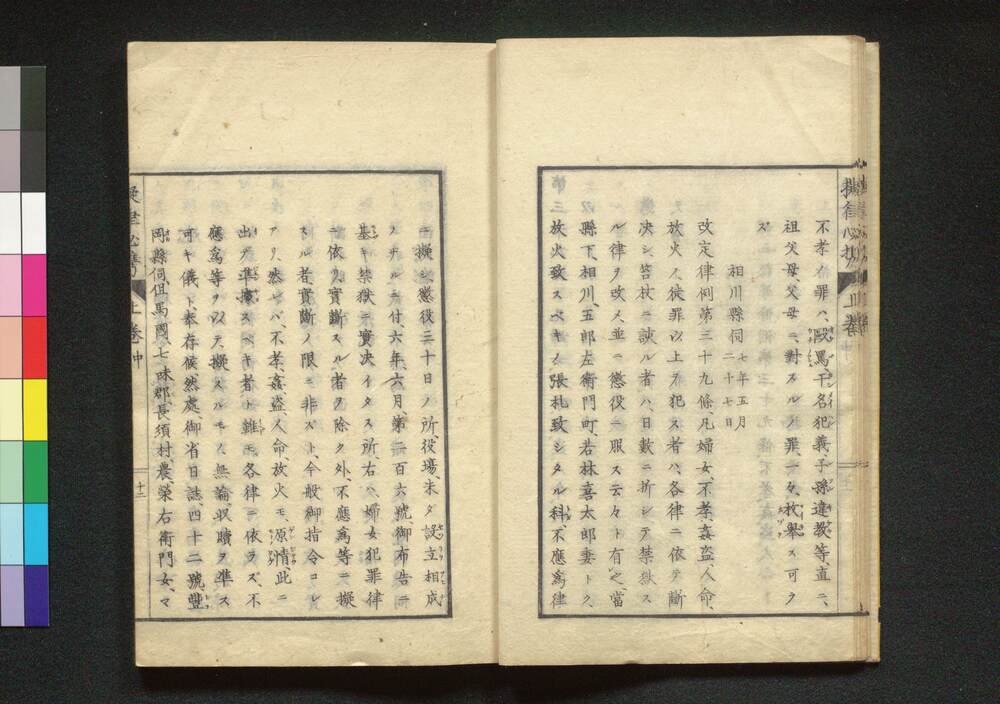 不孝ノ罪ハ、毆罵干名犯義、子孫違教等、直ニ、
祖父母、父母ニ、對スルノ罪、一々、枚舉ス可ラ
ズ
相川縣伺 七年五月二十七日
改定律例第三十九條、凡婦女、不孝、姦盜、人命、
放火ノ徒罪以上ヲ犯ス者ハ、各律ニ依テ斷
決シ、笞杖ニ該ル者ハ、日數ニ折シテ禁獄ス
ル律ヲ改メ、並ニ懲役ニ服ス云々ト有之、當
縣下、相川、五郎左衛門町、若林喜太郎妻トク、
放火致スベキノ張札致シタル科、不應爲律
ニ擬シ、懲役三十日ノ所、役場、未タ設立相成
サルニ付、六年、六月、第二百六號、御布告ニ
基キ禁獄ニ實決イタス所、右ハ、婦女犯罪律
ニ依リ、實斷スル者ヲ除ク外、不應爲等ニ擬
スル者實斷ノ限ニ非スト、今般御指令コレ
アリ、然レバ、不孝、姦盜、人命、放火モ、原情、此ニ
出テ準擬スベキ者ト雖モ、各律ニ依ラズ、不
應爲等ヲ以テ擬スルモノ、無論、収贖ヲ準ス
可キ儀ト奉存候然處、御省日誌、四十二號、豐
岡縣伺、但馬國、七味郡、長須村農、榮右衛門女、マ
擬律必携 上卷 中
十二